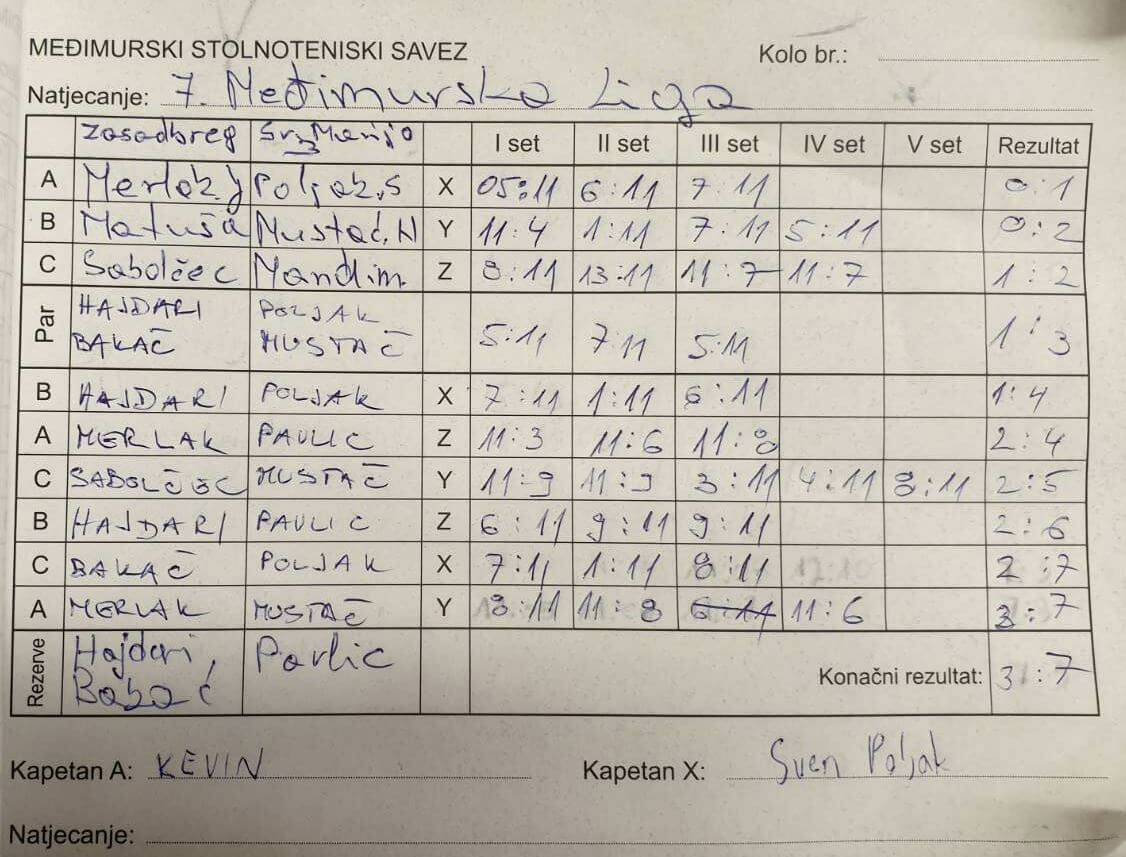 MEĐIMURSKI STOLNOTENISKI SAVEZ Kolo br.:
Natjecanje: 7. Međimurska Liga
Zasadbreg Sv. Marija I set II set III set IV set V set Rezultat
A Merlak J Poljak.S X 05:11 6:11 7:11 0:1
B Matuša Mustač.N Y 11:4 1:11 7:11 5:11 0:2
C Sabolčec Mandim. Z 8:11 13:11 11:7 11:7 1:2
Par HAJDARI BAKAČ POLJAK MUSTAČ 5:11 7:11 5:11 1:3
B HAJDARI POLJAK X 7:11 1:11 6:11 1:4
A MERLAK PAVLIC Z 11:3 11:6 11:8 2:4
C SABOLČEC MUSTAČ Y 11:9 11:9 3:11 4:11 8:11 2:5
B HAJDARI PAVLIC Z 6:11 9:11 9:11 2:6
C BAKAČ POLJAK X 7:11 1:11 8:11 2:7
A MERLAK MUSTAČ Y 8:11 11:8 6:11 11:6 3:7
Rezerve Hajdari, Pavlic
Konačni rezultat: 3:7
Kapetan A: KEVIN Kapetan X: Sven Poljak
Natjecanje: